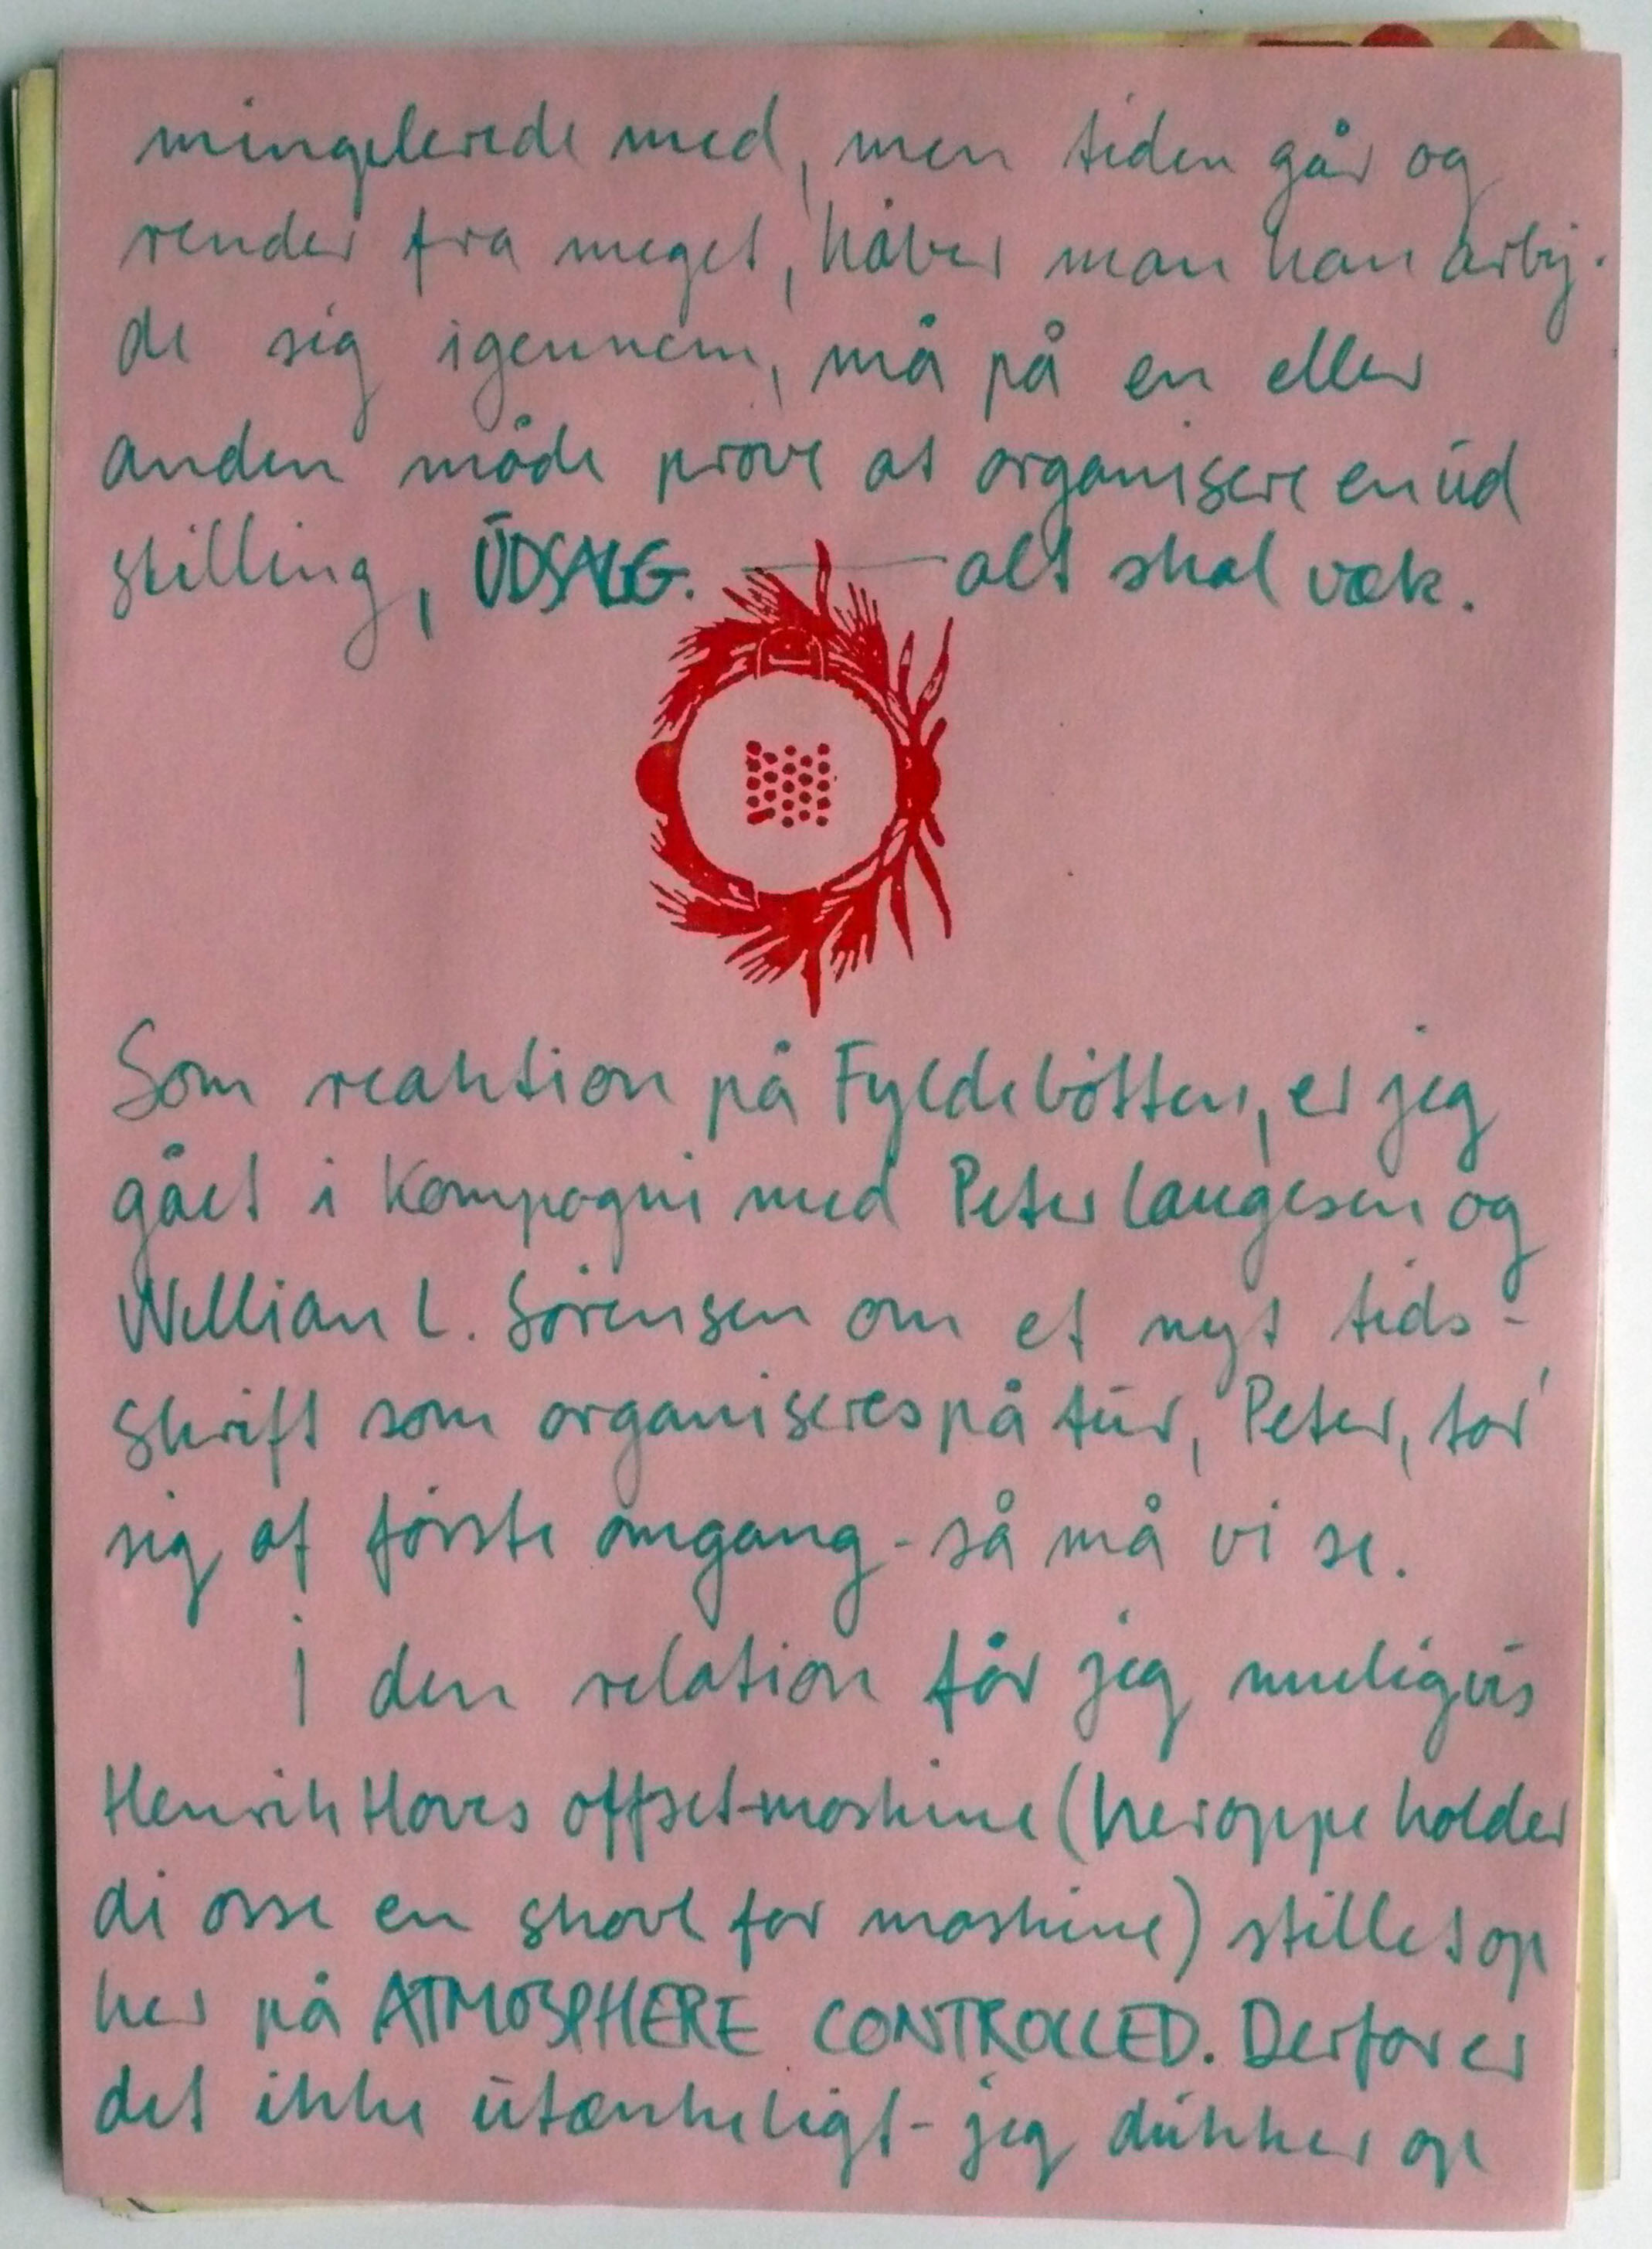 mingelerede med, men tiden går og
render fra meget, håber man kan arbej-
de sig igennem, må på en eller
anden måde pröve at organisere en ud
stilling, UDSALG. — alt skal væk.
Som reaktion på Fyldebötten, er jeg
gået i Kompagni med Peter Laugesen og
Willian L. Sörensen om et nyt tids-
skrift som organiseres på tur, Peter, tar'
sig af förste omgang - så må vi se.
I den relation får jeg mueligvis
Henrik Haves offset-maskine (heroppe holder
di osse en skovl for maskine) stillet op
her på ATMOSPHERE CONTROLLED. Derfor er
det ikke utænkeligt - jeg dukker op